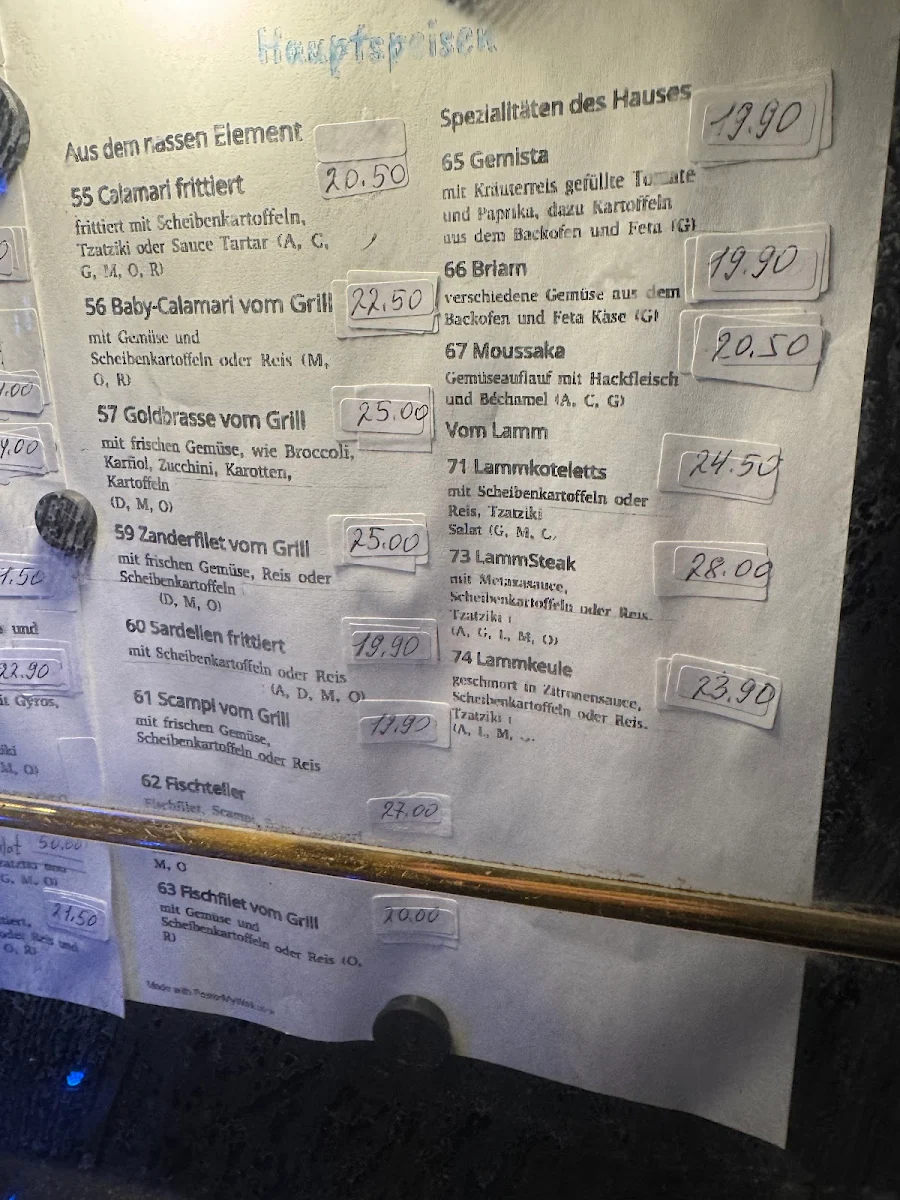 Hauptspeisen
Aus dem nassen Element
55 Calamari frittiert
20.50
frittiert mit Scheibenkartoffeln,
Tzatziki oder Sauce Tartar (A, C,
G, M, O, R)
56 Baby-Calamari vom Grill
22.50
mit Gemüse und
Scheibenkartoffeln oder Reis (M,
O, R)
57 Goldbrasse vom Grill
25.00
mit frischen Gemüse, wie Broccoli,
Karfiol, Zucchini, Karotten,
Kartoffeln
(D, M, O)
59 Zanderfilet vom Grill
25.00
mit frischen Gemüse, Reis oder
Scheibenkartoffeln
(D, M, O)
60 Sardellen frittiert
19,90
mit Scheibenkartoffeln oder Reis
(A, D, M, O)
61 Scampi vom Grill
19,90
mit frischen Gemüse,
Scheibenkartoffeln oder Reis
62 Fischteller
27.00
Fischfilet,
M, O
63 Fischfilet vom Grill
20.00
mit Gemüse und
Scheibenkartoffeln oder Reis (O,
R)
Made with PosterMyWall.com
Spezialitäten des Hauses
65 Gemista
19.90
mit Kräuterreis gefüllte Tomate
und Paprika, dazu Kartoffeln
aus dem Backofen und Feta (G)
66 Briam
19.90
verschiedene Gemüse aus dem
Backofen und Feta Käse (G)
67 Moussaka
20.50
Gemüseauflauf mit Hackfleisch
und Béchamel (A, C, G)
Vom Lamm
71 Lammkoteletts
24.50
mit Scheibenkartoffeln oder
Reis, Tzatziki
Salat (G, M, C,
73 LammSteak
28.00
mit Metaxasauce,
Scheibenkartoffeln oder Reis.
Tzatziki
(A, G, L, M, O)
74 Lammkeule
23,90
geschmort in Zitronensauce,
Scheibenkartoffeln oder Reis.
Tzatziki
(A, L, M,
und
22.90
Gyros,
M, O)
50.00
G, M, O)
21,50
oder Reis und
O, R)